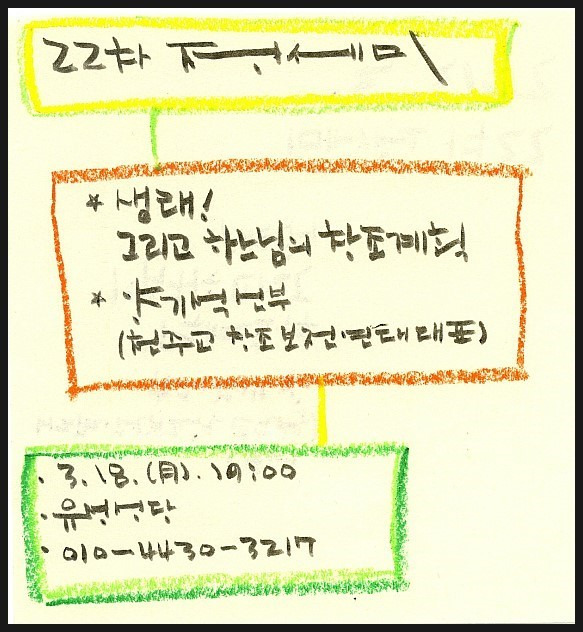 22차
* 생태!
그리고 하느님의 창조계획
* 양기석 신부
(천주교 창조보전연대 대표)
· 3.18.(月). 19:00
· 성당
· 010-4430-3217